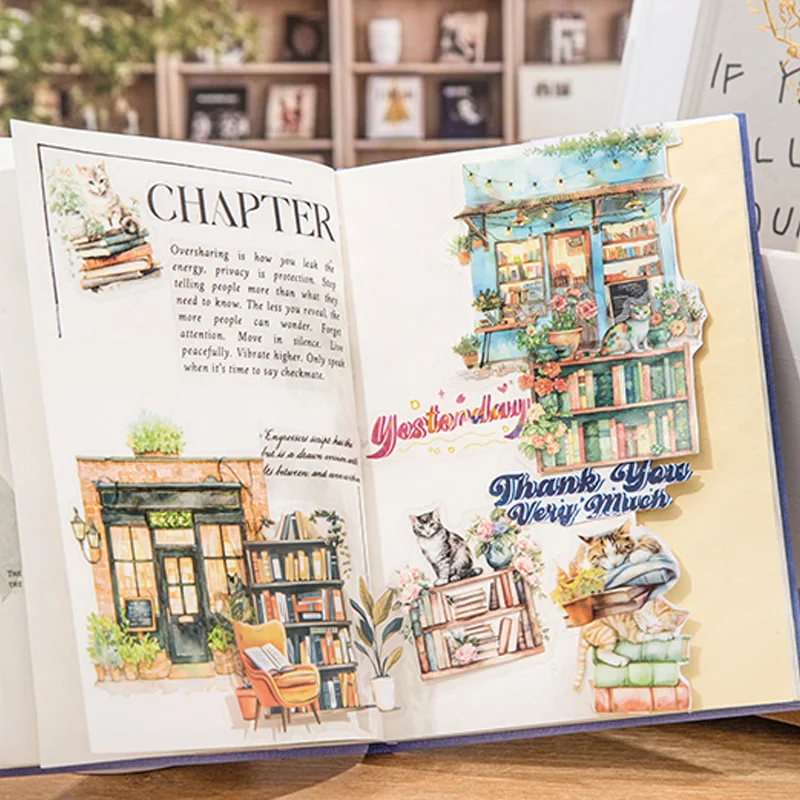 CHAPTER
Oversharing is how you leak the
energy, privacy is protection. Stop
telling people more than what they
need to know. The less you reveal, the
more people can wonder. Forget
attention. Move in silence. Live
peacefully. Vibrate higher. Only speak
when it's time to say checkmate.
Engressies script has the
but is a drawn version with
lts between and even
Yesterday
Thank You
Very Much
IF Y
LL
OUR